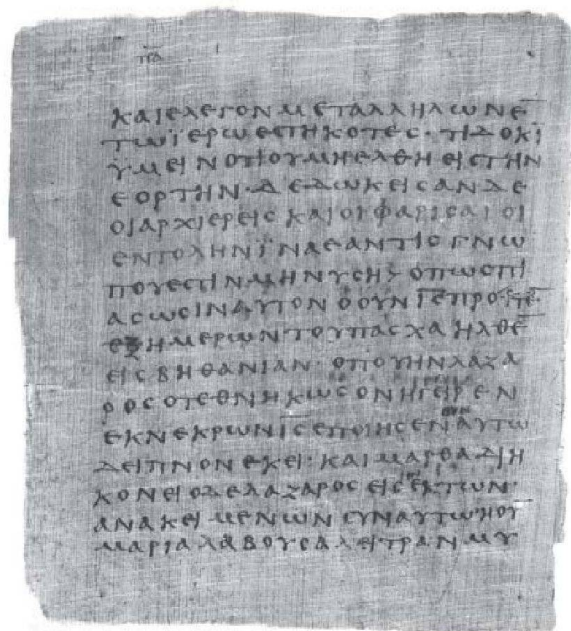 ΚΑΙΕΛΕΓΟΝΜΕΤΑΛΛΗΛΩΝΕ̅
ΤΩΪΕΡΩΕϹΤΗΚΟΤΕϹ·ΤΙΔΟΚΙ
ΫΜΕΙΝΟΤΙΟΥΜΗΕΛΘΗΕΙϹΤΗΝ
ΕΟΡΤΗΝ·ΔΕΔΩΚΕΙϹΑΝΔΕ
ΟΙΑΡΧΙΕΡΕΙϹΚΑΙΟΙΦΑΡΙϹΑΙΟΙ
ΕΝΤΟΛΗΝΪΝΑΕΑΝΤΙϹΓΝΩ
ΠΟΥΕϹΤΙΝΜΗΝΥϹΗ·ΟΠΩϹΠΙ
ΑϹΩϹΙΝΑΥΤΟΝΟΟΥΝΙ̅Ϲ̅ΠΡΟ
ΕΞΗΜΕΡΩΝΤΟΥΠΑϹΧΑΗΛΘΕ̅
ΕΙϹΒΗΘΑΝΙΑΝ·ΟΠΟΥΗΝΛΑΖΑ
ΡΟϹΟΤΕΘΝΗΚΩϹΟΝΗΓΕΙΡΕΝ
ΕΚΝΕΚΡΩΝΙ̅Ϲ̅ΕΠΟΙΗϹΕΝΑΥΤΩ
ΔΕΙΠΝΟΝΕΚΕΙ·ΚΑΙΜΑΡΘΑΔΙΗ
ΚΟΝΕΙΟΔΕΛΑΖΑΡΟϹΕΙϹΕΚΤΩΝ·
ΑΝΑΚΕΙΜΕΝΩΝϹΥΝΑΥΤΩ·ΗΟΥ̅
ΜΑΡΙΑΛΑΒΟΥϹΑΛΕΙΤΡΑΝΜΥ